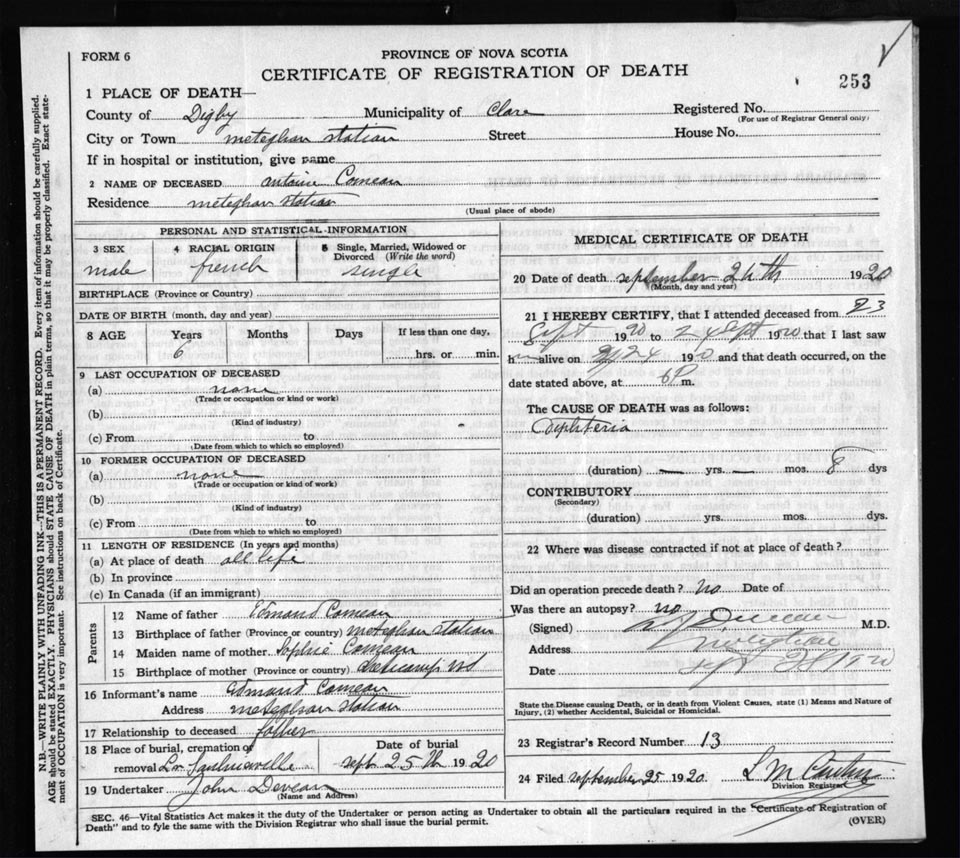 FORM 6
PROVINCE OF NOVA SCOTIA
CERTIFICATE OF REGISTRATION OF DEATH
253
1 PLACE OF DEATH—
County of Digby Municipality of Clare Registered No.
(For use of Registrar General only)
City or Town meteghan station Street House No.
If in hospital or institution, give name
2 NAME OF DECEASED antoine Comeau
Residence meteghan station
(Usual place of abode)
PERSONAL AND STATISTICAL INFORMATION
3 SEX 4 RACIAL ORIGIN 5 Single, Married, Widowed or Divorced (Write the word)
male french single
BIRTHPLACE (Province or Country)
DATE OF BIRTH (month, day and year)
8 AGE Years Months Days If less than one day,
6 hrs. or min.
9 LAST OCCUPATION OF DECEASED
(a) none
(Trade or occupation or kind of work)
(b)
(Kind of industry)
(c) From to
(Date from which to which so employed)
10 FORMER OCCUPATION OF DECEASED
(a) none
(Trade or occupation or kind of work)
(b)
(Kind of industry)
(c) From to
(Date from which to which so employed)
11 LENGTH OF RESIDENCE (In years and months)
(a) At place of death all life
(b) In province
(c) In Canada (if an immigrant)
Parents
12 Name of father Edmond Comeau
13 Birthplace of father (Province or country) meteghan station
14 Maiden name of mother Sophie Comeau
15 Birthplace of mother (Province or country)
16 Informant's name Edmond Comeau
Address meteghan station
17 Relationship to deceased father
18 Place of burial, cremation or removal Lr Saulnierville
Date of burial
sept 25th 1920
19 Undertaker John Deveau
(Name and Address)
MEDICAL CERTIFICATE OF DEATH
20 Date of death september 24th 1920
(Month, day and year)
21 I HEREBY CERTIFY, that I attended deceased from 23
Sept 1920 to 24 Sept 1920 that I last saw
h alive on 24 1920 and that death occurred, on the
date stated above, at 6 P m.
The CAUSE OF DEATH was as follows:
Diphteria
(duration) — yrs. — mos. 8 dys
CONTRIBUTORY
(Secondary)
(duration) yrs. mos. dys.
22 Where was disease contracted if not at place of death?
Did an operation precede death? no Date of
Was there an autopsy? no
(Signed) M.D.
Address Meteghan
Date Sept 1920
State the Disease causing Death, or in death from Violent Causes, state (1) Means and Nature of
Injury, (2) whether Accidental, Suicidal or Homicidal.
23 Registrar's Record Number 13
24 Filed september 25 1920 L M
Division Registrar
SEC. 46—Vital Statistics Act makes it the duty of the Undertaker or person acting as Undertaker to obtain all the particulars required in the "Certificate of Registration of
Death" and to fyle the same with the Division Registrar who shall issue the burial permit.
(OVER)
N.B.—WRITE PLAINLY WITH UNFADING INK—THIS IS A PERMANENT RECORD. Every item of information should be carefully supplied.
AGE should be stated EXACTLY. PHYSICIANS should STATE CAUSE OF DEATH in plain terms, so that it may be properly classified. Exact state-
ment of OCCUPATION is very important. See instructions on back of Certificate.